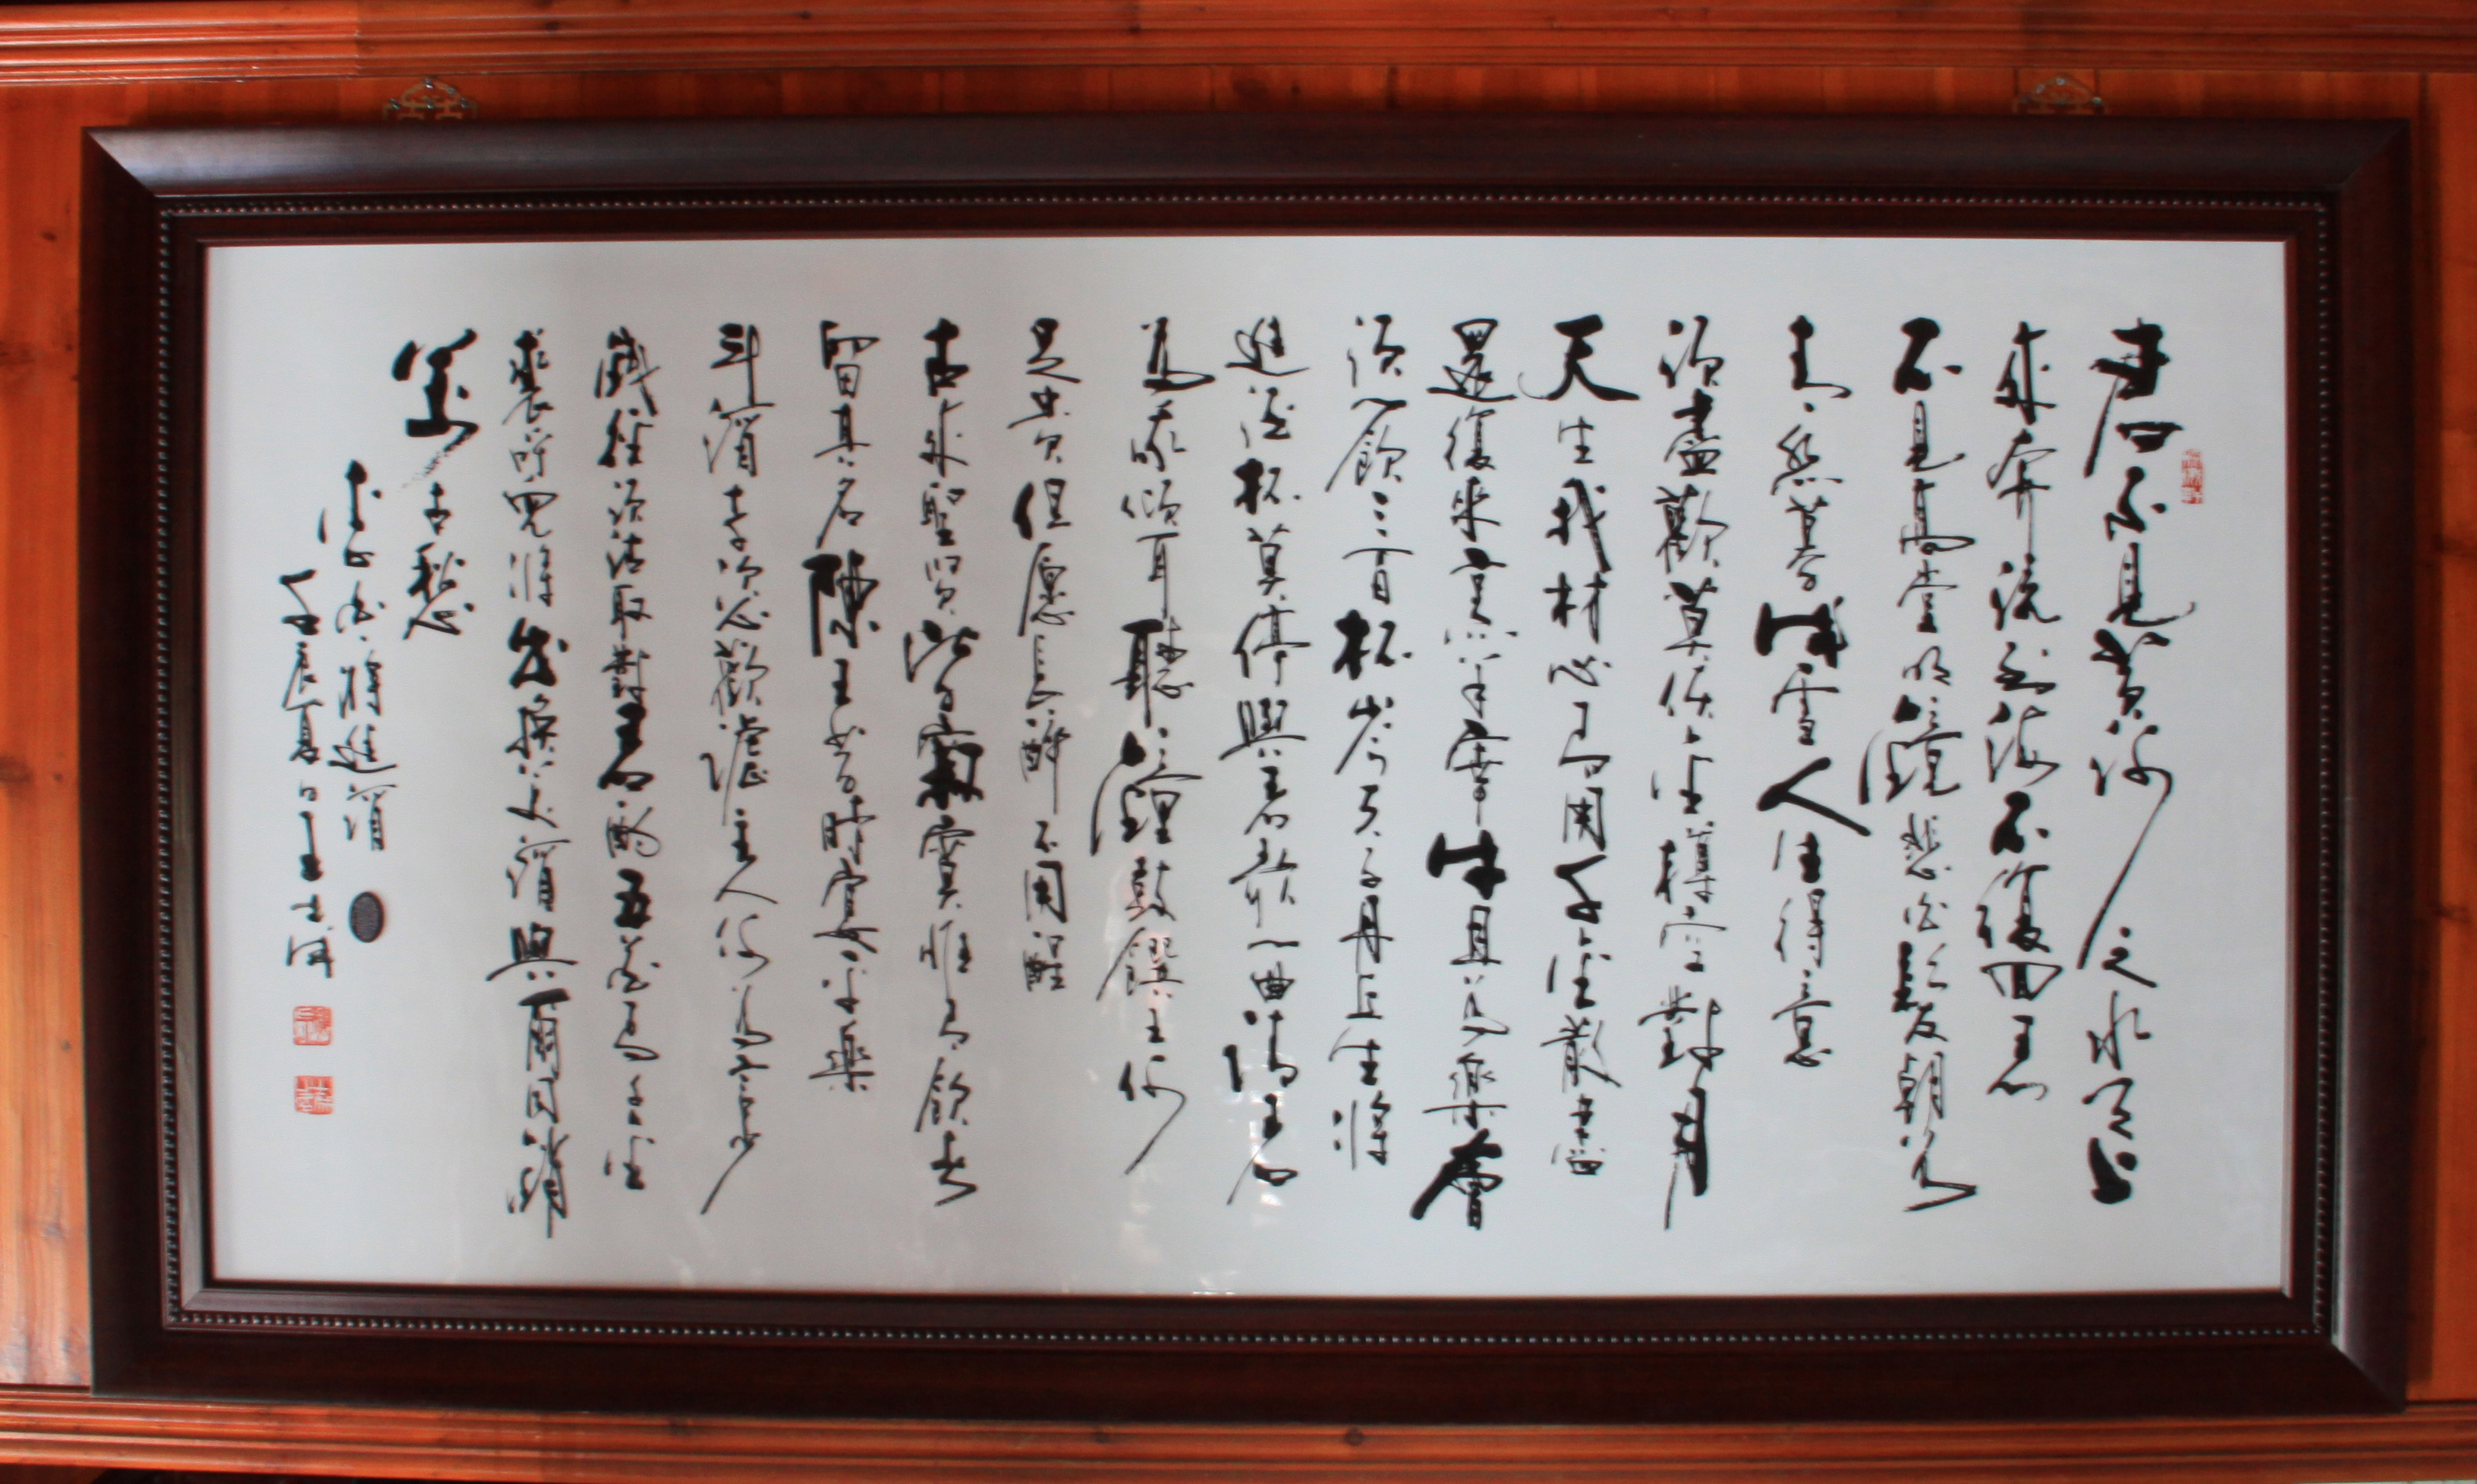 君不見黃河之水天上
來奔流到海不復回君
不見高堂明鏡悲白髮朝如
青絲暮成雪人生得意
須盡歡莫使金樽空對月
天生我材必有用千金散盡
還復來烹羊宰牛且為樂會
須一飲三百杯岑夫子丹丘生將
進酒杯莫停與君歌一曲請君
為我傾耳聽鐘鼓饌玉何
足貴但愿長醉不用醒
古來聖賢皆寂寞惟有飲者
留其名陳王昔時宴平樂
斗酒十千恣歡謔主人何為言少
錢徑須沽取對君酌五花馬千金
裘呼兒將出換美酒與爾同銷
萬古愁
李白 將進酒
壬辰夏日